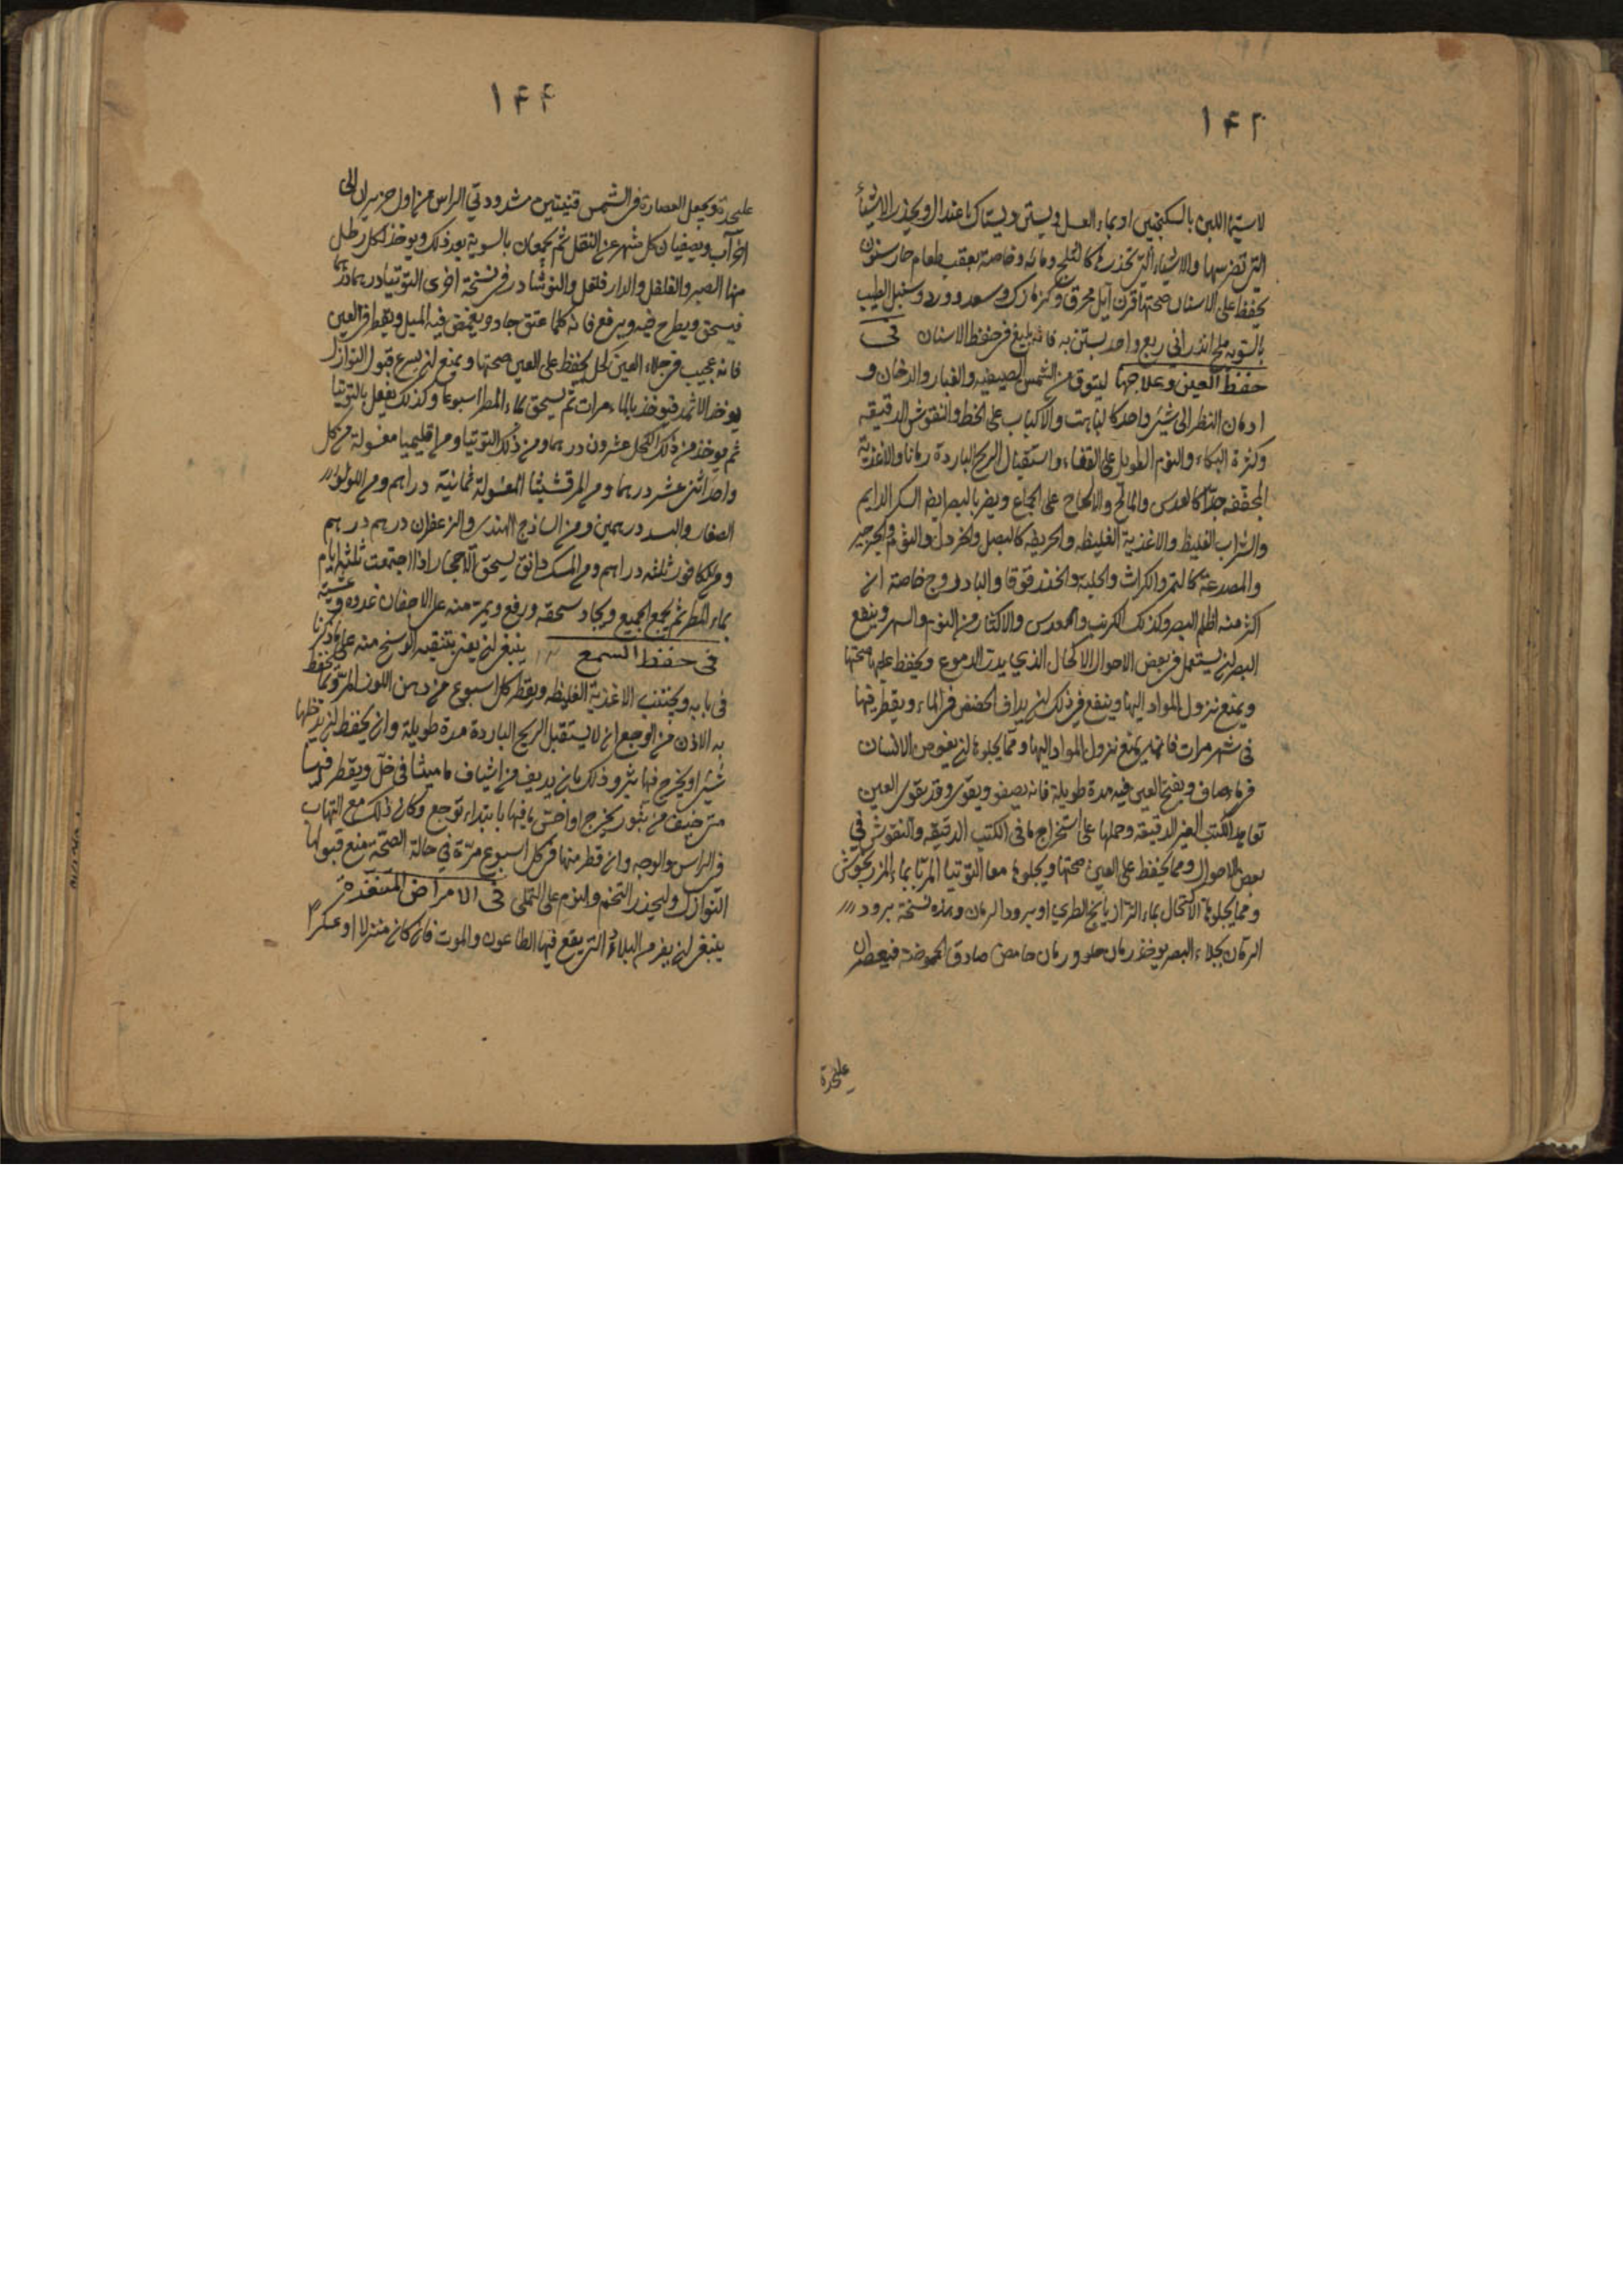 ۱۴۳
لاسيما اللبن بالسكنجبين او بماء العسل ويستن ويستاك باعتدال ويحذر الاشياء
التي تضرسها والاشياء التي تخدرها كالثلج ومائه وخاصة بعقب طعام حار سنون
يحفظ على الاسنان صحتها قرن ايل محرق وكزمازك وسعد وورد وسنبل الطيب
بالسويه ملح اندراني ربع واحد يستن به فانه بليغ في حفظ الاسنان في
حفظ العين وعلاجها ليتوق من الشمس الصيفيه والغبار والدخان و
ادمان النظر الى شيئ واحد كالباهت والاكباب على الخط والنقوش الدقيقه
وكثرة البكاء والنوم الطويل على القفاء واستقبال الريح الباردة زمانا والاغذية
المجففه جدا كالعدس والمالح والالحاح على الجماع ويضر بالبصر ايضا السكر الدايم
والشراب الغليظ والاغذية الغليظه والحريفه كالبصل والخردل والثوم والجرجير
والمصدعة كالتمر والكراث والحلبة والحندقوقا والبادروج خاصة ان
اكثر منه اظلم البصر وكذلك الكرنب والعدس والاكثار من النوم والسهر وينفع
البصر ان يستعمل في بعض الاحوال الاكحال الذي يدر الدموع ويحفظ عليها صحتها
ويمنع نزول المواد اليها وينفع في ذلك ان يداف الحضض في الماء ويقطر فيها
في شهر مرات فانه يمنع نزول المواد اليها ومما يجلوها ان يغوص الانسان
في ماء صاف ويفتح العين فيه مدة طويلة فانه يصفو ويقوى وقد يقوى العين
تعاهد الكتب الغير الدقيقه وحملها على استخراج ما في الكتب الدقيقه والنقوش في
بعض الاحوال ومما يحفظ على العين صحتها ويجلوها معا التوتيا المربا بماء المرزنجوش
ومما يجلوها الاكتحال بماء الرازيانج الطري او برود الرمان وهذه نسخة برود
الرمان بجلاء البصر يوخذ رمان حلو ورمان حامض صادق الحموضة فيعصران
على حدة
۱۴۴
على حدة ويجعل العصارة في الشمس قنينتين مشدودتي الراس من اول حزيران الى
اخر آب ويصفيان كل شهر عن الثفل ثم يجمعان بالسوية بعد ذلك ويوخذ لكل رطل
منها الصبر والفلفل والدار فلفل والنوشادر وفي نسخة اخرى التوتيا درهما درهما
فيسحق ويطرح فيه ويرفع فانه كلما عتق جاد ويغمض فيه الميل ويقطر في العين
فانه عجيب في جلاء العين كحل يحفظ على العين صحتها ويمنع ان يسرع قبول النوازل
يوخذ الاثمد فيوخذ بالماء مرات ثم يسحق بماء المطر اسبوعا وكذلك يفعل بالتوتيا
ثم يوخذ من ذلك الكحل عشرون درهما ومن ذلك التوتيا ومن اقليميا مغسولة من كل
واحد اثني عشر درهما ومن المرقشيثا المغسولة ثمانية دراهم ومن اللولو
الصغار والبسد درهمين ومن الساذج الهندي والزعفران درهم درهم
ومن الكافور ثلثه دراهم ومن المسك دانق يسحق الاحجار اذا اجتمعت ثلثه ايام
بماء المطر ثم يجمع الجميع ويجاد سحقه ورفع ويمر منه على الاجفان غدوه وعشية
في حفظ السمع ينبغي ان يعنى بتنقيه الوسخ منه على ما ذكرنا
في بابه ويجتنب الاغذية الغليظه ويقطر كل اسبوع من دهن اللوز المر ومما يحفظ
به الاذن من الوجع ان لا يستقبل الريح الباردة مدة طويلة وان يحفظ ان يدخلها
شيئ او يخرج فيها بثر وذلك بان يديف من اشياف ماميثا في خل ويقطر فيها
متى خيف من بثور يخرج او احس ما فيها بابتداء توجع وكان ذلك مع التهاب
في الراس والوجه وان قطر منها في كل اسبوع مرة في حالة الصحة منع قبولها
النوازل وليحذر التخم والنوم على التملي في الامراض المتعدية
ينبغي ان يفر من البلاد التي يقع فيها الطاعون والموت فان كان منزلا او عسكرا